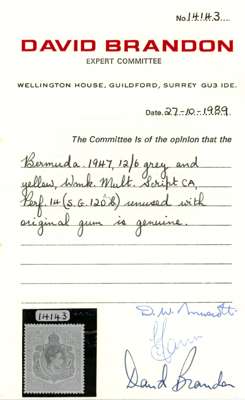 No. 14143
DAVID BRANDON
EXPERT COMMITTEE
WELLINGTON HOUSE, GUILDFORD, SURREY GU3 IDE.
Date. 27-10-1989
The Committee is of the opinion that the
Bermuda. 1947, 12/6 grey and
yellow, Wmk. Mult. Script CA,
Perf. 14 (S.G. 120b) unused with
original gum is genuine.
14143
David Brandon